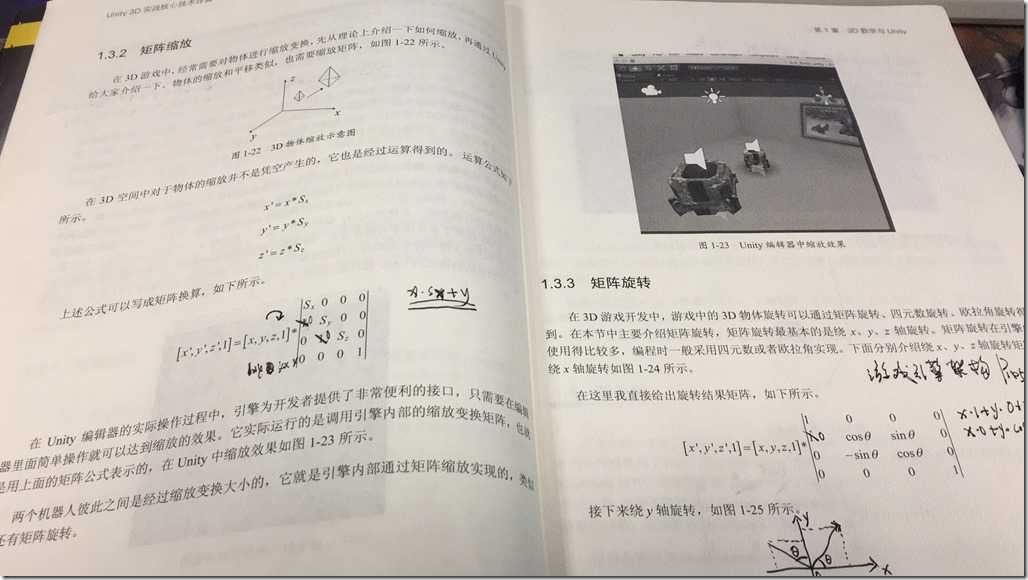 Unity 3D 实战核心技术详解
1.3.2 矩阵缩放
在 3D 游戏中，经常需要对物体进行缩放变换，先从理论上介绍一下如何缩放，再通过 Unity
给大家介绍一下，物体的缩放和平移类似，也需要缩放矩阵，如图 1-22 所示。
z
x
y
图 1-22 3D 物体缩放示意图
在 3D 空间中对于物体的缩放并不是凭空产生的，它也是经过运算得到的。运算公式如下
所示。
x'= x*Sx
y'= y*Sy
z'= z*Sz
上述公式可以写成矩阵换算，如下所示。
x·Sx+y
Sx 0 0 0
0 Sy 0 0
[x',y',z',1]=[x,y,z,1]*
0 0 Sz 0
0 0 0 1
在 Unity 编辑器的实际操作过程中，引擎为开发者提供了非常便利的接口，只需要在编辑
器里面简单操作就可以达到缩放的效果。它实际运行的是调用引擎内部的缩放变换矩阵，也就
是用上面的矩阵公式表示的，在 Unity 中缩放效果如图 1-23 所示。
两个机器人彼此之间是经过缩放变换大小的，它就是引擎内部通过矩阵缩放实现的，类似
还有矩阵旋转。
第 1 章 3D 数学与 Unity
图 1-23 Unity 编辑器中缩放效果
1.3.3 矩阵旋转
在 3D 游戏开发中，游戏中的 3D 物体旋转可以通过矩阵旋转、四元数旋转、欧拉角旋转得
到。在本节中主要介绍矩阵旋转，矩阵旋转最基本的是绕 x、y、z 轴旋转。矩阵旋转在引擎
使用得比较多，编程时一般采用四元数或者欧拉角实现。下面分别介绍绕 x、y、z 轴旋转矩
绕 x 轴旋转如图 1-24 所示。
游戏引擎架构
在这里我直接给出旋转结果矩阵，如下所示。
1 0 0 0
x·1+y·0+
0 cosθ sinθ 0
x·0+y·co
[x',y',z',1]=[x,y,z,1]*
0 −sinθ cosθ 0
0 0 0 1
接下来绕 y 轴旋转，如图 1-25 所示。
y
θ θ x